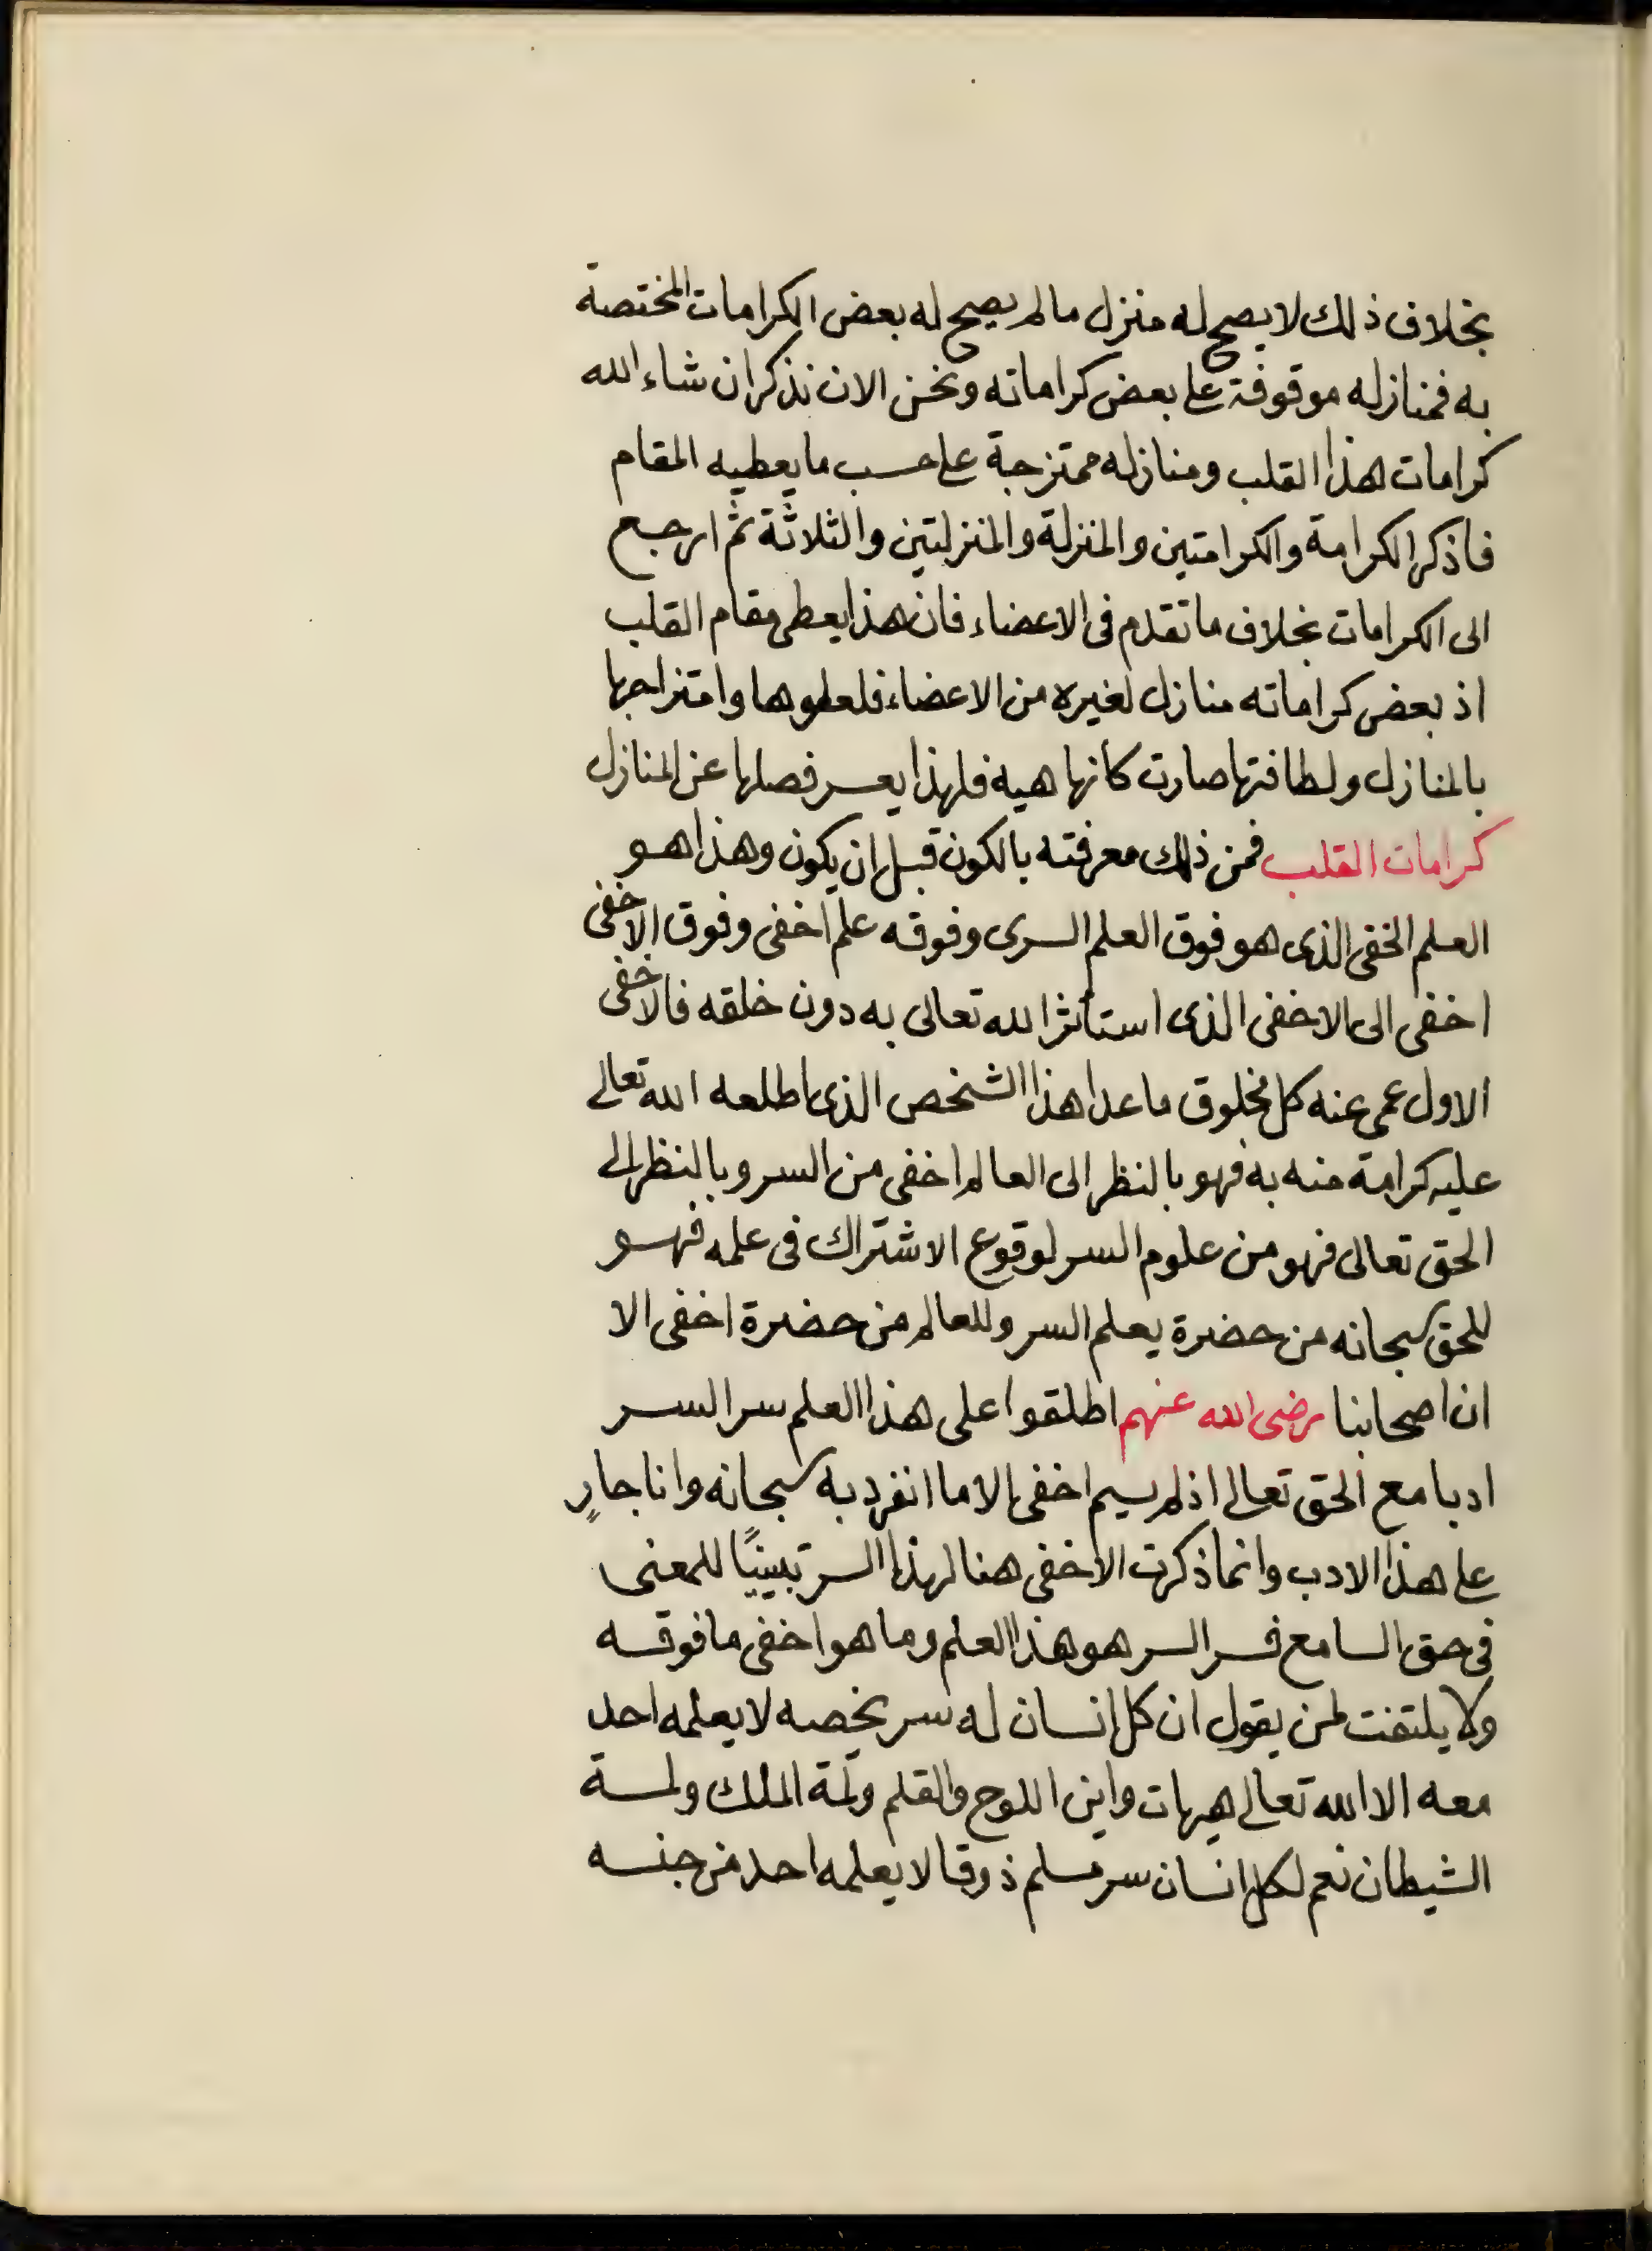 بخلاف ذلك لا يصح له منزل ما لم يصح له بعض الكرامات المختصة
به فمنازله موقوفة على بعض كراماته ونحن الان نذكر ان شاء الله
كرامات هذا القلب ومنازله ممتزجة على حسب ما يعطيه المقام
فاذكر الكرامة والكرامتين والمنزلة والمنزلتين والثلاثة ثم ارجع
الى الكرامات بخلاف ما تقدم فى الاعضاء فان هذا يعطى مقام القلب
اذ بعض كراماته منازل لغيره من الاعضاء فلعلوها وامتزاجها
بالمنازل ولطافتها صارت كانها هيه فلهذا يعسر فصلها عن المنازل
كرامات القلب فمن ذلك معرفته بالكون قبل ان يكون وهذا هو
العلم الخفى الذى هو فوق العلم السرى وفوقه علم اخفى وفوق الاخفى
اخفى الى الاخفى الذى استاثر الله تعالى به دون خلقه فالاخفى
الاول عمى عنه كل مخلوق ما عدا هذا الشخص الذى اطلعه الله تعالى
عليه كرامة منه به فهو بالنظر الى العالم اخفى من السر وبالنظر الى
الحق تعالى فهو من علوم السر لوقوع الاشتراك فى علمه فهو
للحق سبحانه من حضرة يعلم السر وللعالم من حضرة اخفى الا
ان اصحابنا رضى الله عنهم اطلقوا على هذا العلم سر السر
ادبا مع الحق تعالى اذ لم يسم اخفى الا ما انفرد به سبحانه وانا جارٍ
على هذا الادب وانما ذكرت الاخفى هنا لهذا السر تبيينًا للمعنى
فى حق السامع فسر السر هو هذا العلم وما هو اخفى ما فوقه
ولا يلتفت لمن يقول ان كل انسان له سر يخصه لا يعلمه احد
معه الا الله تعالى هيهات واين اللوح والقلم ولمة الملك ولمة
الشيطان نعم لكل انسان سر مسلم ذوقا لا يعلمه احد من جنسه